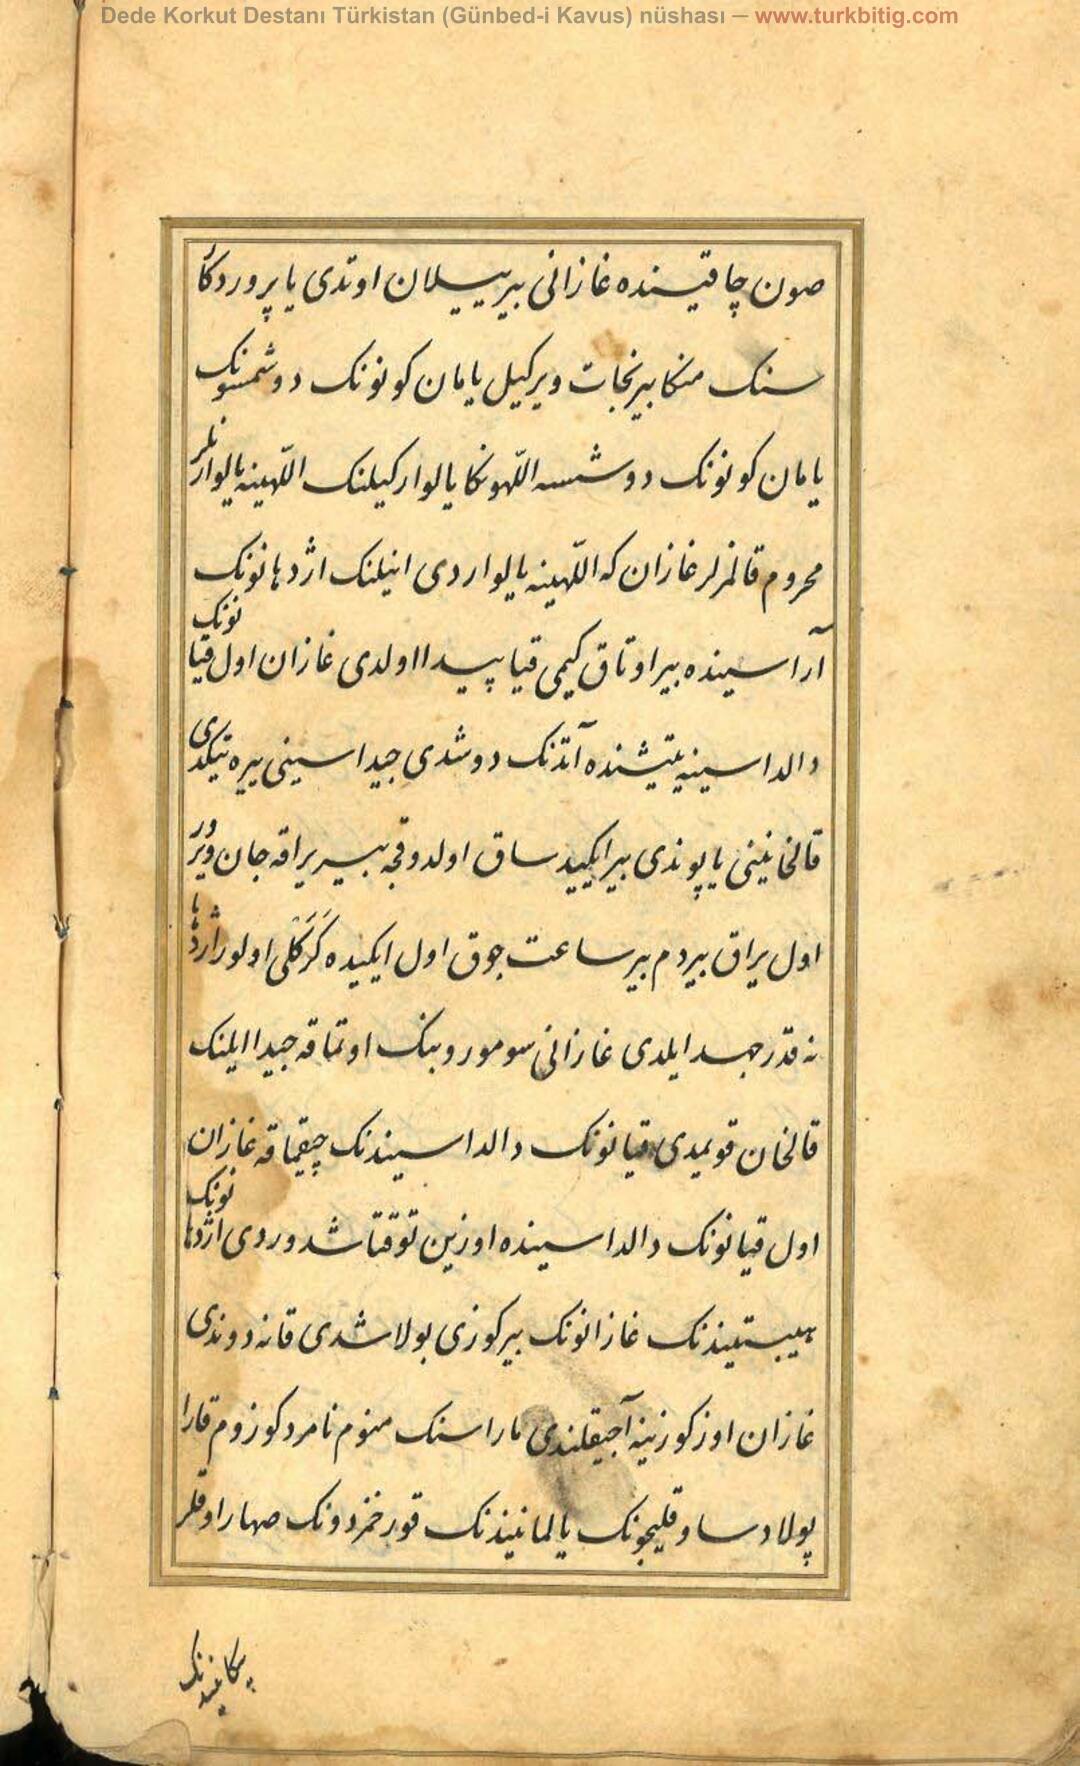 Dede Korkut Destanı Türkistan (Günbed-i Kavus) nüshası — www.turkbitig.com
صون چاقینده غازانی بیر ییلان اوتدی یا پروردکار
سنک منکا بیر نجات ویرکیل یامان کونونک دوشمسونک
یامان کونونک دوشسه اللّهونکا یالوارکیلنک اللّهینه یالوارنلر
محروم قالمزلر غازان که اللّهینه یالواردی انیلنک اژدهانونک
آراسینده بیر اوتاق کیمی قیا پیدا اولدی غازان اول قیانونک
دالداسینه یتیشنده آتدنک دوشدی جیداسینی ییره تیکدی
قالخانینی یاپوندی بیر ایکید ساق اولدوقجه بیر یراقه جان ویرور
اول یراق بیر دم بیر ساعت جوق اول ایکیده کَرَکلی اولور اژدها
نه قدر جهد ایلدی غازانی سوموروبنک اوتماقه جیدا ایلنک
قالخان قویمدی قیانونک دالداسیندنک چیقماقه غازان
اول قیانونک دالداسینده اوزین توقتاشدوردی اژدهانونک
هیبتیندنک غازانونک بیر کوزی بولاشدی قانه دوندی
غازان اوز کوزینه آجیقلندی مارا سنک منوم نامرد کوزوم قارا
پولاد ساو قلیچونک یالمانیندنک قورخمزدونک صهارا اوقلر
پیکانیندنک